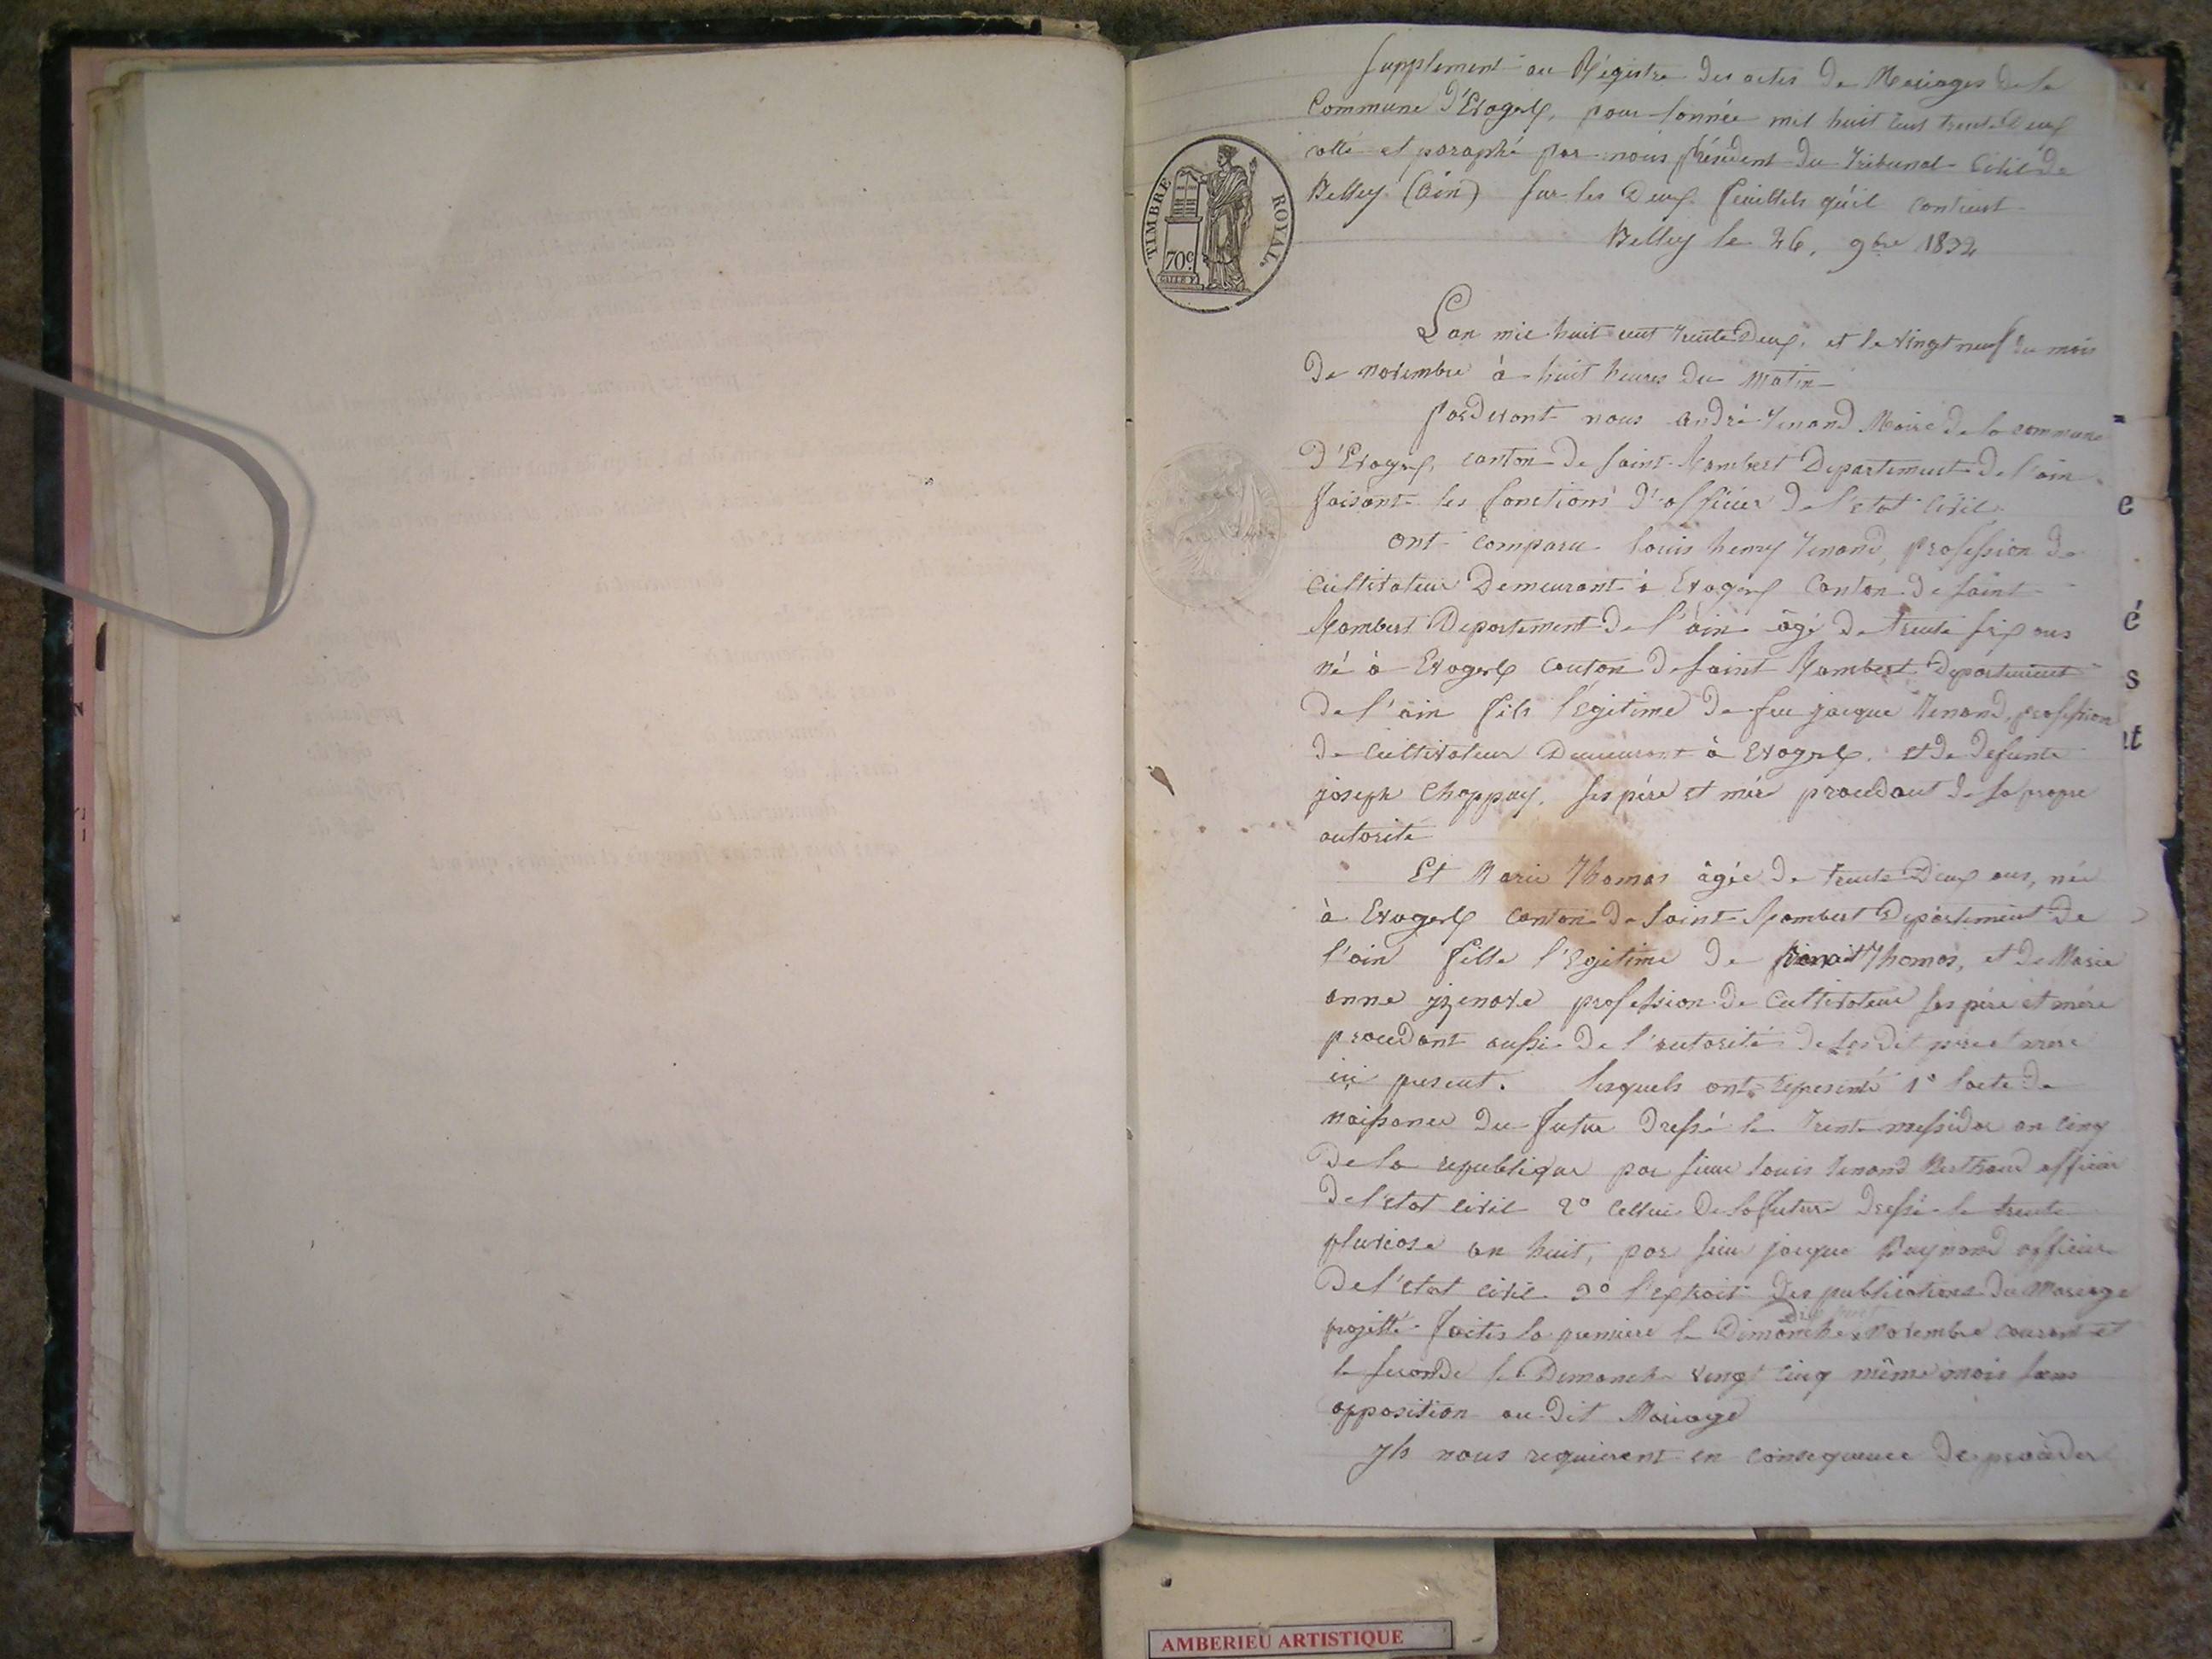 Supplement au Régistre des actes de Mariages de la
Commune d'Evoges, pour lannée mil huit cent trente Deux
cotté et paraphé par nous président du Tribunal Civil de
Belley (Ain) sur les Deux feuillets qu'il contient
Belley le 26. 9bre 1832
TIMBRE ROYAL.
70c
L'an mil huit cent trente Deux, et le vingt neuf du mois
De novembre à huit heures du matin
pardevant nous andré Tenand Maire de la commune
D'Evoges, canton de saint Rambert Departement de l'ain
faisant les fonctions d'officier de l'etat Civil
ont comparu louis henry Tenand, profession de
Cultivateur Demeurant à Evoges Canton de saint
Rambert Departement de l'ain âgé de trente six ans
né à Evoges Canton de saint Rambert Departement
De l'ain fils légitime de feu jacque Tenand, profession
de Cultivateur Demeurant à Evoges. et de defunte
joseph Chappuy. ses pére et mére procedant de sa propre
autorité
Et Marie Thomas âgée de trente Deux ans, née
à Evoges Canton de saint Rambert Département de
l'ain fille l'égitime de Thomas, et de Marie
anne profession de Cultivateur ses pére et mére
procedant aussi de l'autorité de ses dit père et mere
ici present. lesquels ont représenté 1o lacte de
naissance du futur Dressé le Trente messidor an Cinq
De la republique par sieur louis Tenand Berthand officier
De l'etat Civil 2o Cellui de la future Dressé le trente
pluviose an huit, par sieur jacque Raynand officier
De l'etat Civil 3o l'extrait des publications du Mariage
projetté faites la premiere le Dimanche dix huit novembre courant et
la seconde le Dimanche vingt Cinq même mois sans
opposition au dit Mariage
Ils nous requierent en consequence de procèder
e
é
s
nt
AMBERIEU ARTISTIQUE